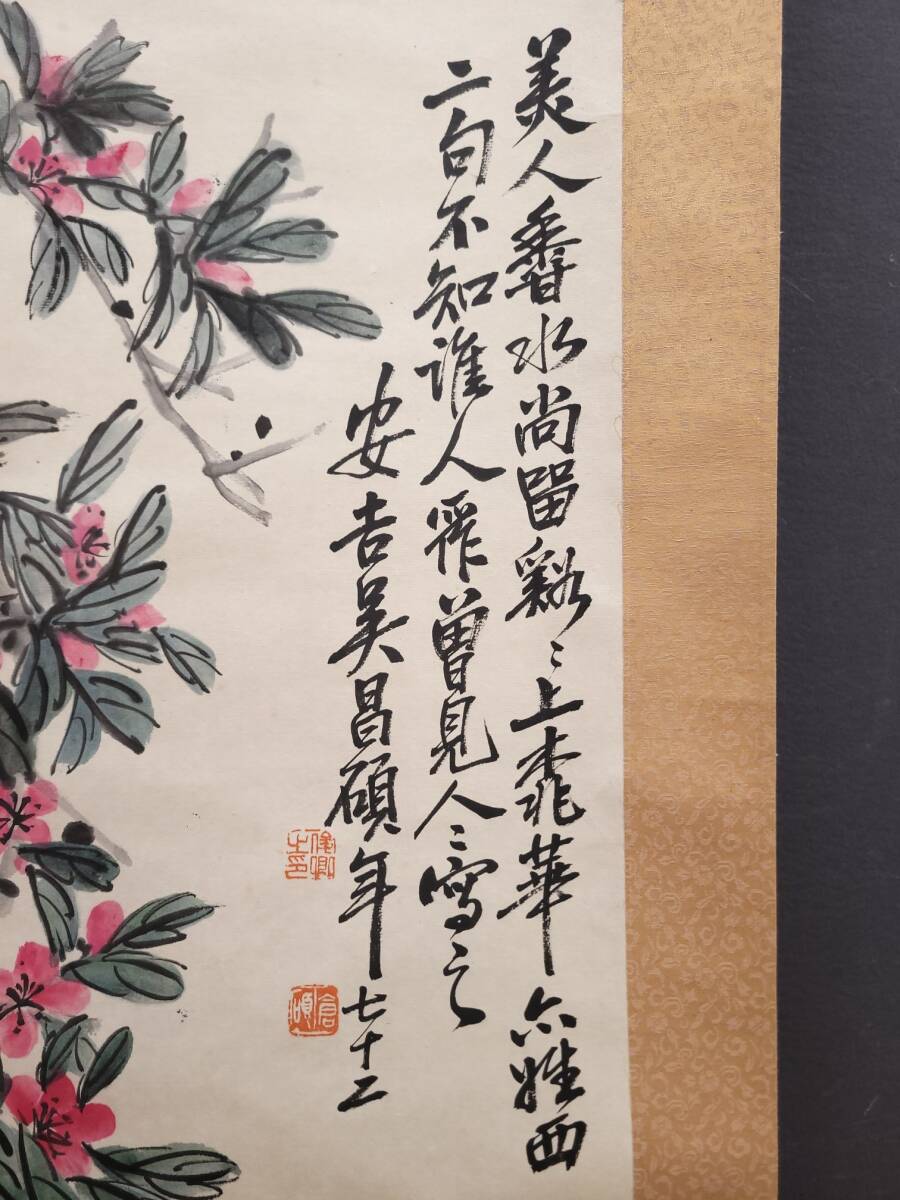 美人香水尚留谿〻上桃華亦姓西
二句不知誰人作曾見人〻寫之
安吉吳昌碩年七十二
俊卿之印
倉碩